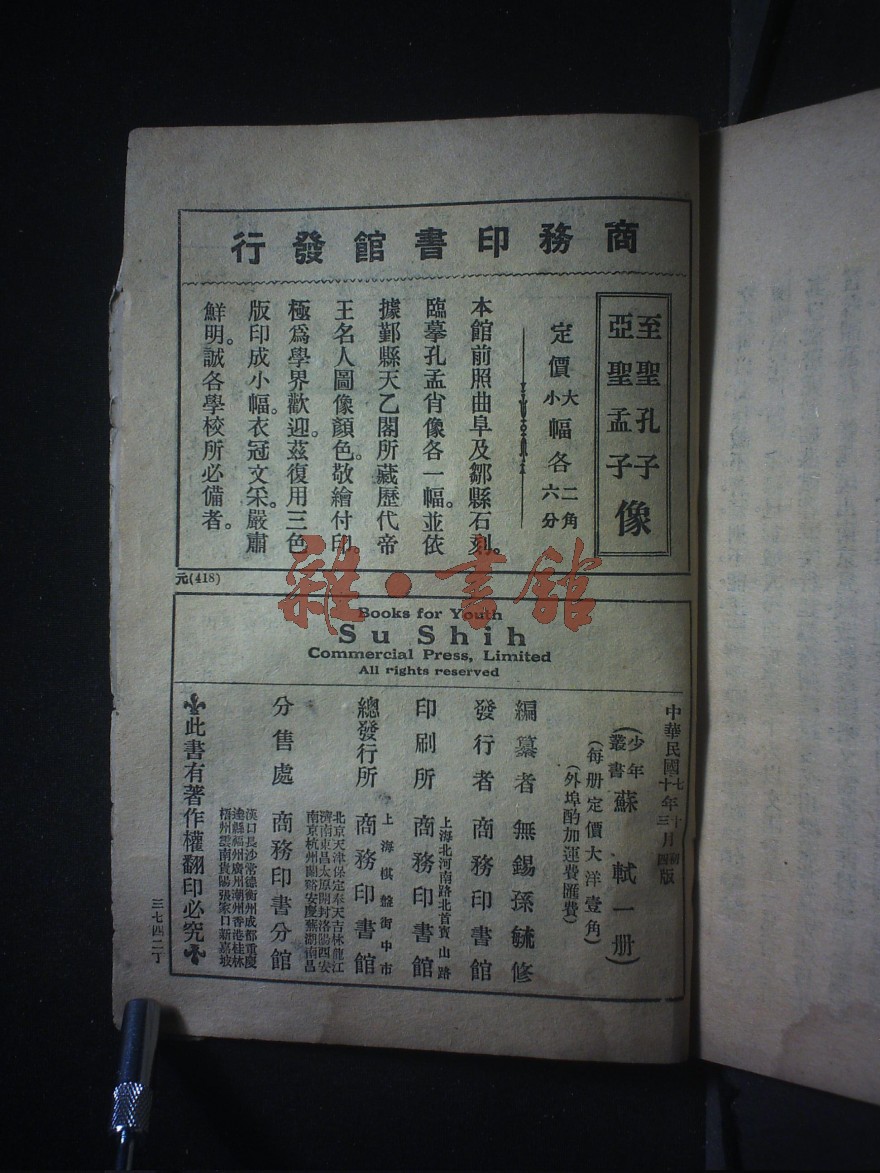 商務印書館發行
至聖孔子
亞聖孟子
像
定價大小幅各二角六分
本館前照曲阜及鄒縣石刻。
臨摹孔孟肖像各一幅。並依
據鄞縣天乙閣所藏歷代帝
王名人圖像顏色。敬繪付印。
極爲學界歡迎。茲復用三色
版印成小幅。衣冠文采。嚴肅
鮮明。誠各學校所必備者。
元(418)
雜·書館
Books for Youth
Su Shih
Commercial Press, Limited
All rights reserved
中華民國七年十月初版
十三四
(少年叢書蘇軾一册)
(每册定價大洋壹角)
(外埠酌加運費匯費)
編纂者 無錫孫毓修
發行者 商務印書館
上海北河南路北首寶山路
印刷所 商務印書館
上海棋盤街中市
總發行所 商務印書館
北京天津保定奉天吉林龍江
濟南東昌太原開封洛陽西安
南京杭州蘭谿安慶蕪湖南昌
分售處 商務印書分館
漢口長沙常德衡州成都重慶
達縣福州廣州潮州香港桂林
梧州雲南貴陽張家口新嘉坡
此書有著作權翻印必究
三七四二丁